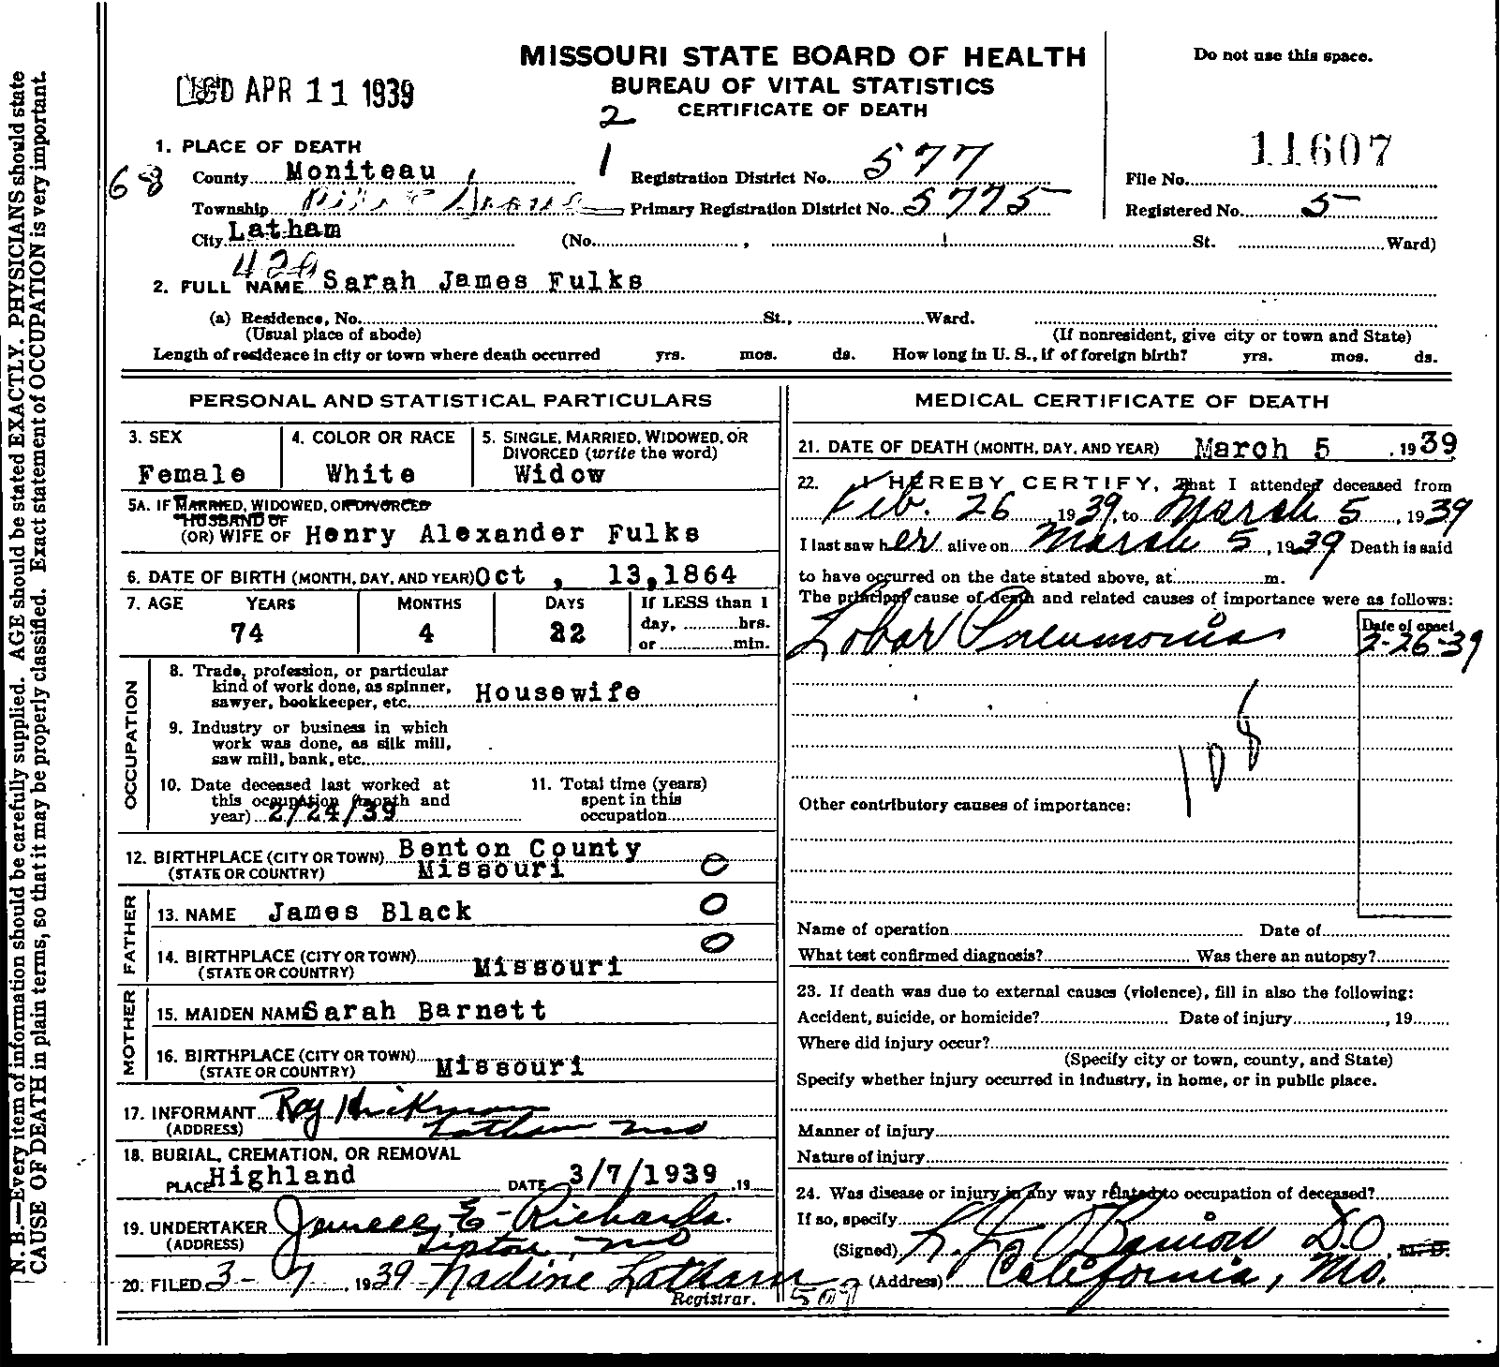 MISSOURI STATE BOARD OF HEALTH
BUREAU OF VITAL STATISTICS
CERTIFICATE OF DEATH
Do not use this space.
APR 11 1939
2
1
68
1. PLACE OF DEATH
County Moniteau
Registration District No. 577
11607
File No.
Township
Primary Registration District No. 5775
Registered No. 5
City Latham (No. , St. Ward)
2. FULL NAME Sarah James Fulks
(a) Residence, No. St., Ward.
(Usual place of abode) (If nonresident, give city or town and State)
Length of residence in city or town where death occurred yrs. mos. ds. How long in U. S., if of foreign birth? yrs. mos. ds.
PERSONAL AND STATISTICAL PARTICULARS
3. SEX
Female
4. COLOR OR RACE
White
5. SINGLE, MARRIED, WIDOWED, OR
DIVORCED (write the word)
Widow
5A. IF MARRIED, WIDOWED, OR DIVORCED
HUSBAND OF
(OR) WIFE OF Henry Alexander Fulks
6. DATE OF BIRTH (MONTH, DAY, AND YEAR) Oct , 13,1864
7. AGE YEARS MONTHS DAYS
74 4 22
If LESS than 1
day, hrs.
or min.
OCCUPATION
8. Trade, profession, or particular
kind of work done, as spinner,
sawyer, bookkeeper, etc. Housewife
9. Industry or business in which
work was done, as silk mill,
saw mill, bank, etc.
10. Date deceased last worked at
this occupation (month and
year) 2/24/39
11. Total time (years)
spent in this
occupation
12. BIRTHPLACE (CITY OR TOWN) Benton County
(STATE OR COUNTRY) Missouri
FATHER
13. NAME James Black
14. BIRTHPLACE (CITY OR TOWN)
(STATE OR COUNTRY) Missouri
MOTHER
15. MAIDEN NAME Sarah Barnett
16. BIRTHPLACE (CITY OR TOWN)
(STATE OR COUNTRY) Missouri
17. INFORMANT Roy Hickman
(ADDRESS) Latham Mo
18. BURIAL, CREMATION, OR REMOVAL
PLACE Highland DATE 3/7/1939 , 19
19. UNDERTAKER E Richards.
(ADDRESS) Tipton, Mo
20. FILED 3-7, 1939 Nadine Latham
Registrar.
507
MEDICAL CERTIFICATE OF DEATH
21. DATE OF DEATH (MONTH, DAY, AND YEAR) March 5 , 1939
22. I HEREBY CERTIFY, That I attended deceased from
Feb. 26 1939, to March 5, 1939
I last saw her alive on March 5, 1939 Death is said
to have occurred on the date stated above, at m.
The principal cause of death and related causes of importance were as follows:
Date of onset
Lobar Pneumonia 2-26-39
108
Other contributory causes of importance:
Name of operation Date of
What test confirmed diagnosis? Was there an autopsy?
23. If death was due to external causes (violence), fill in also the following:
Accident, suicide, or homicide? Date of injury , 19
Where did injury occur?
(Specify city or town, county, and State)
Specify whether injury occurred in industry, in home, or in public place.
Manner of injury
Nature of injury
24. Was disease or injury in any way related to occupation of deceased?
If so, specify
(Signed) D.O , M. D.
(Address) California, Mo.
N. B.—Every item of information should be carefully supplied. AGE should be stated EXACTLY. PHYSICIANS should state
CAUSE OF DEATH in plain terms, so that it may be properly classified. Exact statement of OCCUPATION is very important.